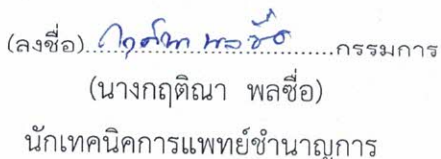 (ลงชื่อ)..กฤติณา พลซื่อ..กรรมการ
(นางกฤติณา พลซื่อ)
นักเทคนิคการแพทย์ชำนาญการ